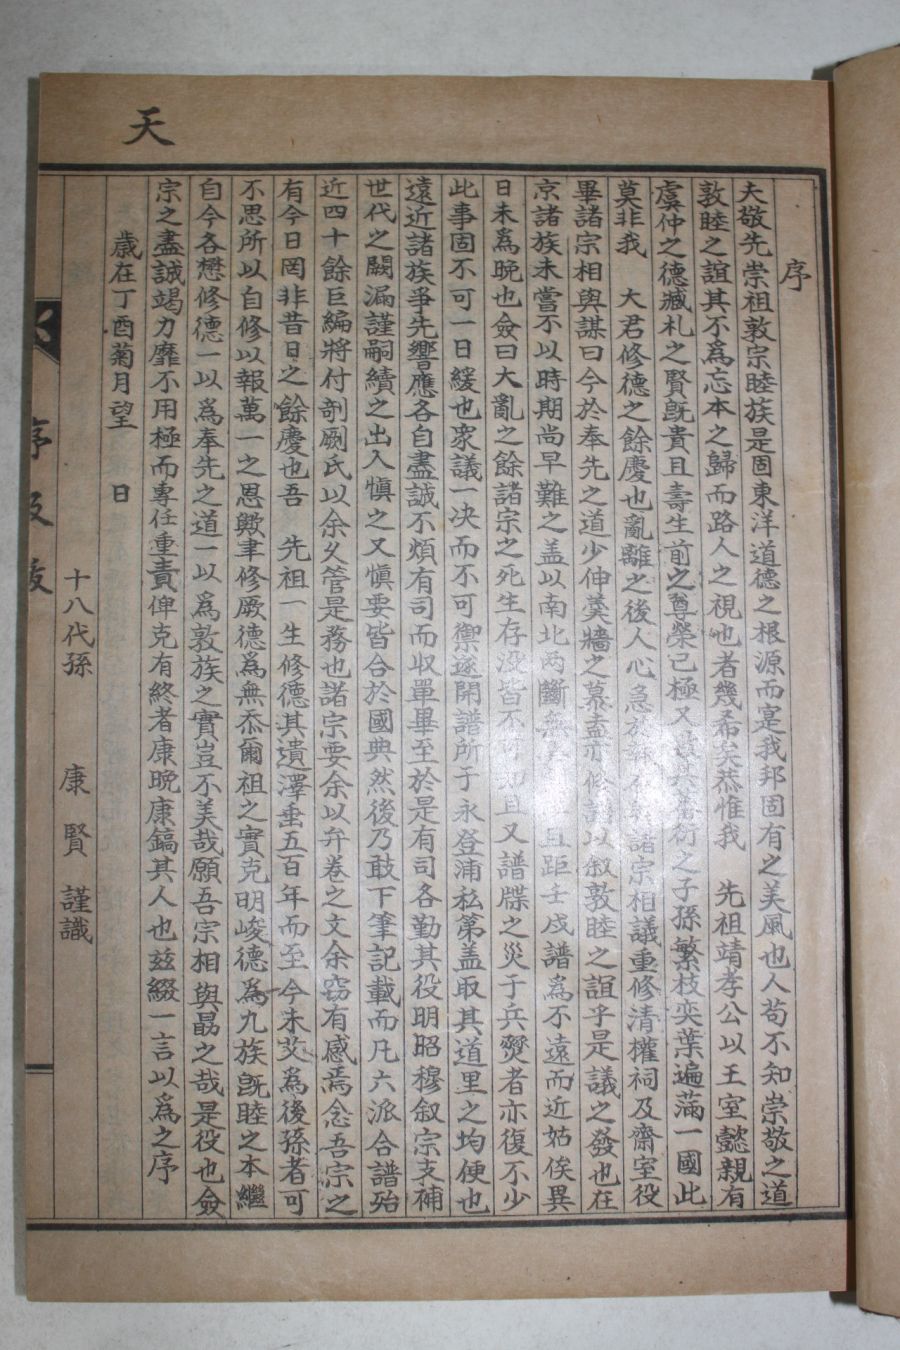 天
序
夫敬先崇祖敦宗睦族是固東洋道德之根源而寔我邦固有之美風也人苟不知崇敬之道
敦睦之誼其不爲忘本之歸而路人之視也者幾希矣恭惟我 先祖靖孝公以王室懿親有
虞仲之德臧札之賢旣貴且壽生前之尊榮已極又 其 衍之子孫繁枝奕葉遍滿一國此
莫非我 大君修德之餘慶也亂離之後人心急於 諸宗相議重修清權祠及齋室役
畢諸宗相與謀曰今於奉先之道少伸羹牆之慕盍亦修譜以叙敦睦之誼乎是議之發也在
京諸族未嘗不以時期尚早難之盖以南北两斷無 且距壬戍譜爲不遠而近姑俟異
日未爲晩也僉曰大亂之餘諸宗之死生存沒皆不 且又譜牒之災于兵燹者亦復不少
此事固不可一日緩也衆議一决而不可禦遂開譜所于永登浦私第盖取其道里之均便也
遠近諸族爭先響應各自盡誠不煩有司而收單畢至於是有司各勤其役明昭穆叙宗支補
世代之闕漏謹嗣續之出入愼之又愼要皆合於國典然後乃敢下筆記載而凡六派合譜殆
近四十餘巨編將付剞劂氏以余夂管是務也諸宗要余以弁卷之文余窃有感焉念吾宗之
有今日罔非昔日之餘慶也吾 先祖一生修德其遺澤垂五百年而至今未艾爲後孫者可
不思所以自修以報萬一之思歟聿修厥德爲無忝爾祖之實克明峻德爲九族旣睦之本繼
自今各懋修德一以爲奉先之道一以爲敦族之實豈不美哉願吾宗相與勗之哉是役也僉
宗之盡誠竭力靡不用極而專任重責俾克有終者康晩康鎬其人也玆綴一言以爲之序
歲在丁酉菊月望 日
十八代孫 康賢 謹識
序